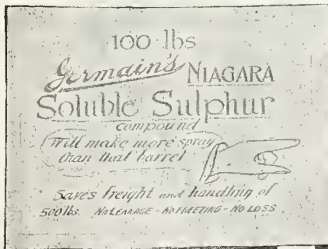 100 lbs
Germain's NIAGARA
Soluble Sulphur
compound
Will make more spray
than that barrel
Saves freight and handling of
500 lbs. NO LEAKAGE - NO FREEZING - NO LOSS